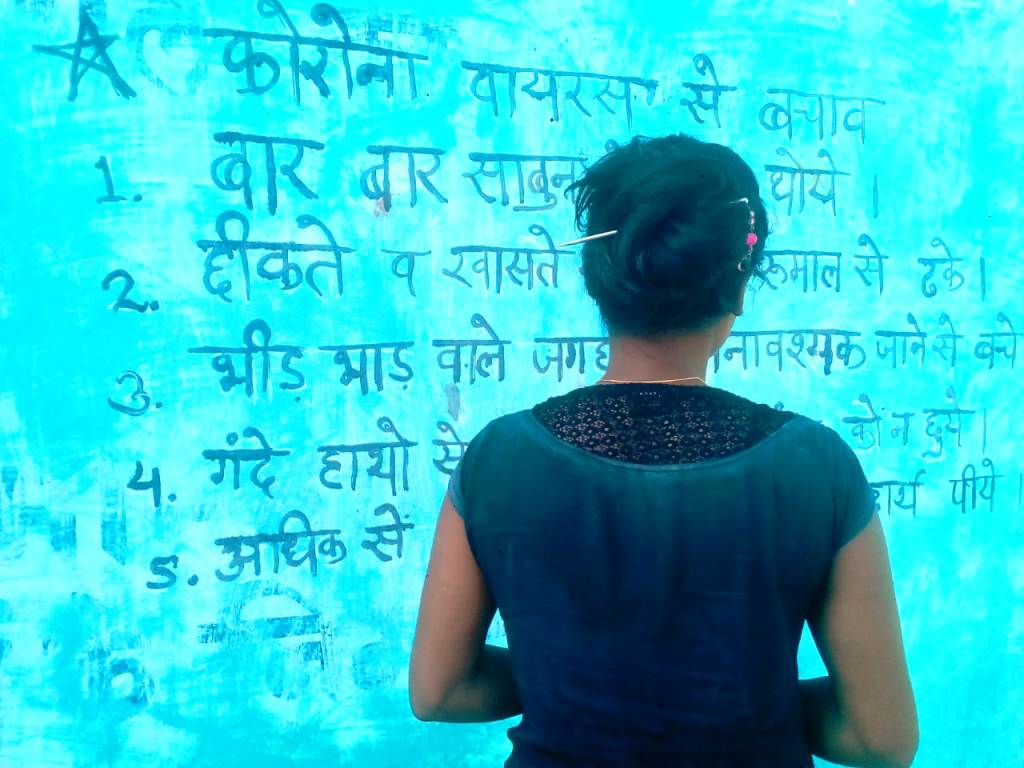 कोरोना वायरस से बचाव
1. बार बार साबुन धोये ।
2. छीकते व खासते रूमाल से ढके ।
3. भीड़ भाड़ वाले जाने से बचे
4. गंदे हाथो से को न छुये ।
5. अधिक सें पीये ।